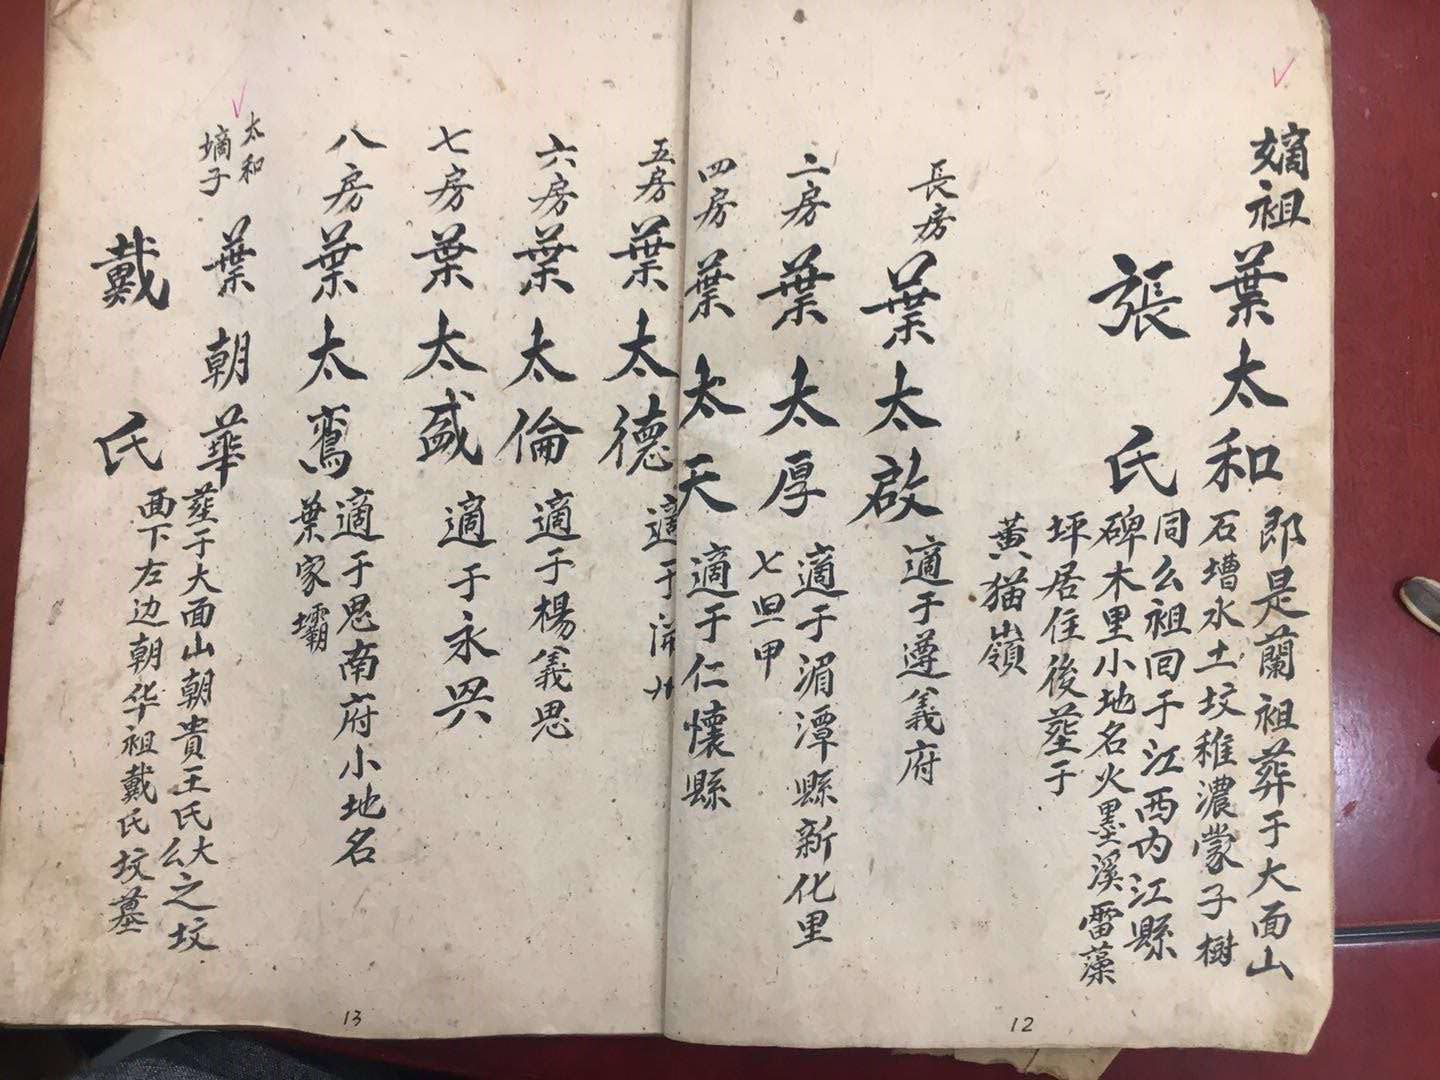 嫡祖葉太和
張氏
郎是蘭祖葬于大面山
石墰水土坟稚濃蒙子樹
同么祖回于江西內江縣
碑木里小地名火墨溪雷藻
坪居住後葬于
黄猫嶺
長房葉太啟適于遵義府
二房葉太厚適于湄潭縣新化里
七甲
四房葉太天適于仁懷縣
五房葉太德適于
六房葉太倫適于楊義思
七房葉太盛適于永兴
八房葉太鸞適于思南府小地名
葉家壩
太和
嫡子葉朝華
葬于大面山朝貴王氏大么之坟
面下左边朝华祖戴氏坟墓
戴氏
13
12